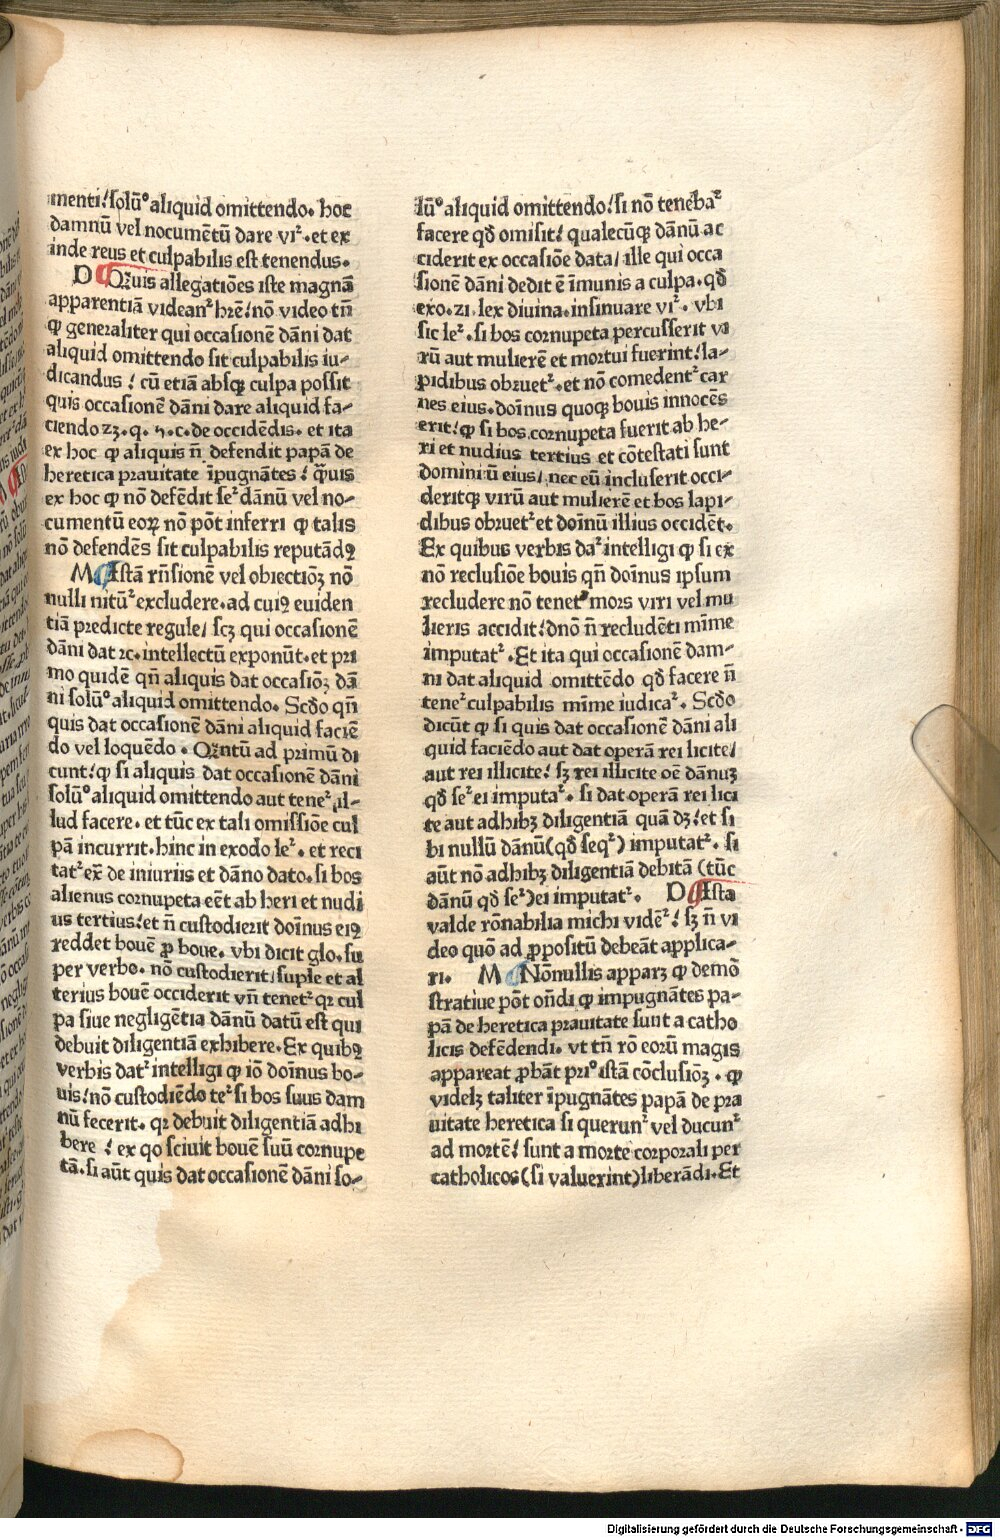 menti/ſolū⁹ aliquid omittendo. hoc
damnū vel nocumētū dare vi². et ex
inde reus et culpabilis eſt tenendus.
D Qȝuis allegatiōes iſte magnā
apparentiā videan² hr̄e/nō video tn̄
ꝙ generaliter qui occaſionē dāni dat
aliquid omittendo ſit culpabilis iu-
dicandus / cū etiā abſqꝫ culpa poſſit
quis occaſionē dāni dare aliquid fa-
ciendo 23. q. 5. c. de occidēdis. et ita
ex hoc ꝙ aliquis n̄ defendit papā de
heretica prauitate īpugnātes / qᷓuis
ex hoc ꝙ nō defēdit ſe² dānū vel no-
cumentū eoꝝ nō pōt inferri ꝙ talis
nō defendēs ſit culpabilis reputādꝰ
M Iſtā rn̄ſionē vel obiectiōꝫ nō
nulli nitū² excludere. ad cuiꝰ euiden
tiā predicte regule/ ſcꝫ qui occaſionē
dāni dat ⁊c. intellectū exponūt. et pri
mo quidē qn̄ aliquis dat occaſiōꝫ dā
ni ſolū⁹ aliquid omittendo. Scd̄o qn̄
quis dat occaſionē dāni aliquid faciē
do vel loquēdo . Qȝntū ad primū di
cunt/ꝙ ſi aliquis dat occaſionē dāni
ſolū⁹ aliquid omittendo aut tene² il-
lud facere. et tūc ex tali omiſſiōe cul
pā incurrit. hinc in exodo le². et reci
tat² ex̄ de iniuriis et dāno dato. ſi bos
alienus cornupeta eēt ab heri et nudi
us tertius/et n̄ cuſtodierit doīnus eiꝰ
reddet bouē ꝓ boue. vbi dicit glo. ſu
per verbo. nō cuſtodierit/ſuple et al
terius bouē occiderit vn̄ tenet² qꝛ cul
pa ſiue negligētia dānū datū eſt qui
debuit diligentiā exhibere. Ex quibꝰ
verbis dat² intelligi ꝙ iō doīnus bo-
uis/nō cuſtodiēdo te² ſi bos ſuus dam
nū fecerit. qꝛ debuit diligentiā adhi
bere / ex qo ſciuit bouē ſuū cornupe
tā. ſi aūt quis dat occaſionē dāni ſo-
lū⁹ aliquid omittendo/ſi nō teneba²
facere qd̄ omiſit/ qualecūqꝫ dānū ac
ciderit ex occaſiōe data/ ille qui occa
ſionē dāni dedit ē īmunis a culpa. qd̄
exo. 21. lex diuina. inſinuare vi². vbi
ſic le². ſi bos cornupeta percuſſerit vi
rū aut mulierē et mortui fuerint/la-
pidibus obruet². et nō comedent² car
nes eius. doīnus quoqꝫ bouis innocēs
erit/ꝙ ſi bos cornupeta fuerit ab he-
ri et nudius tertius et cōteſtati ſunt
dominiū eius/ nec eū incluſerit occi-
deritqꝫ virū aut mulierē et bos lapi-
dibus obruet² et doīnū illius occidēt.
Ex quibus verbis da² intelligi ꝙ ſi ex
nō recluſiōe bouis qn̄ doīnus ipſum
recludere nō tenet² mors viri vel mu
lieris accidit/dn̄o n̄ recludēti mīme
imputat². Et ita qui occaſionē dam-
ni dat aliquid omittēdo qd̄ facere n̄
tene² culpabilis mīme iudica². Scd̄o
dicūt ꝙ ſi quis dat occaſionē dāni ali
quid faciēdo aut dat operā rei licite/
aut rei illicite/ ſꝫ rei illicite oē dānuꝫ
qd̄ ſe² ei imputa². ſi dat operā rei lici
te aut adhibꝫ diligentiā quā dꝫ/et ſi
bi nullū dānū(qd̄ ſeq²) imputat². ſi
aūt nō adhibꝫ diligentiā debitā (tūc
dānū qd̄ ſe²)ei imputat². D Iſta
valde rōnabilia michi vidē²/ ſꝫ n̄ vi
deo quō ad ꝓpoſitū debeāt applica-
ri. M Nōnullis apparꝫ ꝙ demō
ſtratiue pōt on̄di ꝙ impugnātes pa-
pā de heretica prauitate ſunt a catho
licis defēdendi. vt tn̄ rō eorū magis
appareat ꝓbāt pri⁹ iſtā cōcluſiōꝫ . ꝙ
videlꝫ taliter īpugnātes papā de pra
uitate heretica ſi querun² vel ducun²
ad mortē/ ſunt a morte corporali per
catholicos(ſi valuerint)liberādi. Et
Digitalisierung gefördert durch die Deutsche Forschungsgemeinschaft - DFG